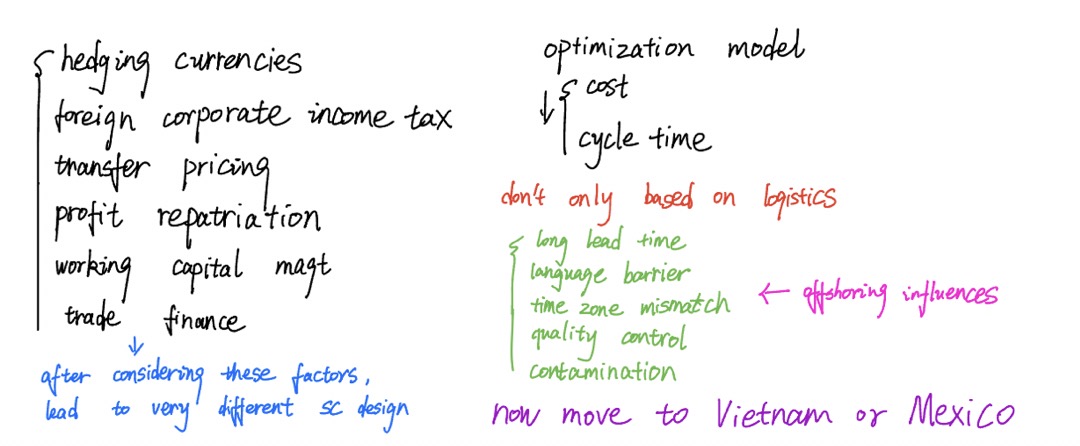 hedging currencies
foreign corporate income tax
transfer pricing
profit repatriation
working capital magt
trade finance
after considering these factors,
lead to very different sc design
optimization model
cost
cycle time
don't only based on logistics
long lead time
language barrier
time zone mismatch
quality control
contamination
← offshoring influences
now move to Vietnam or Mexico